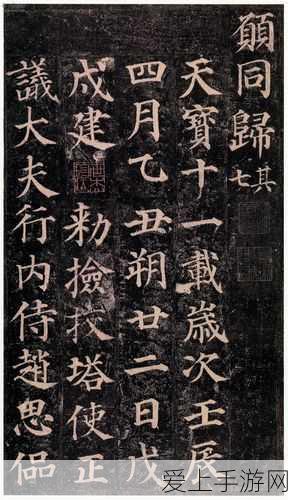 願同歸其七
天寶十一載歲次壬辰
四月乙丑朔廿二日戊
戌建勑撿挍塔使正
議大夫行内侍趙思偘
爱上手游网